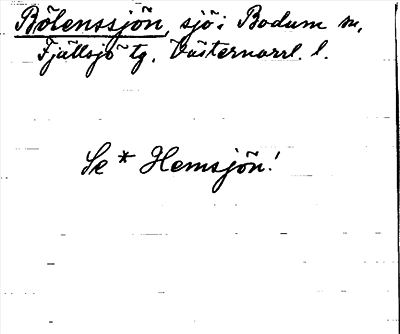 Bölenssjön, sjö i Bodum sn,
Fjällsjö tg. Västernorrl. l.
Se * Hemsjön!